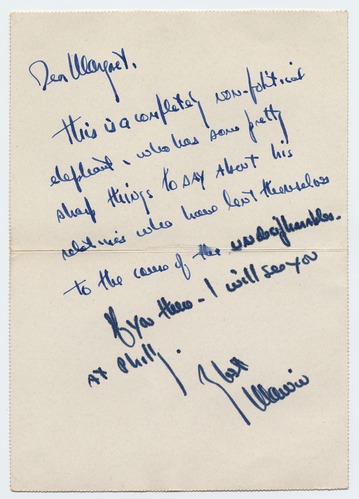 Dear Margret,
This is a completely non-political
elephant, who has some pretty
sharp things to say about his
relatives who have lent themselves
to the cause of the
If you there - I will see you
at Philly.
Best
Marvin